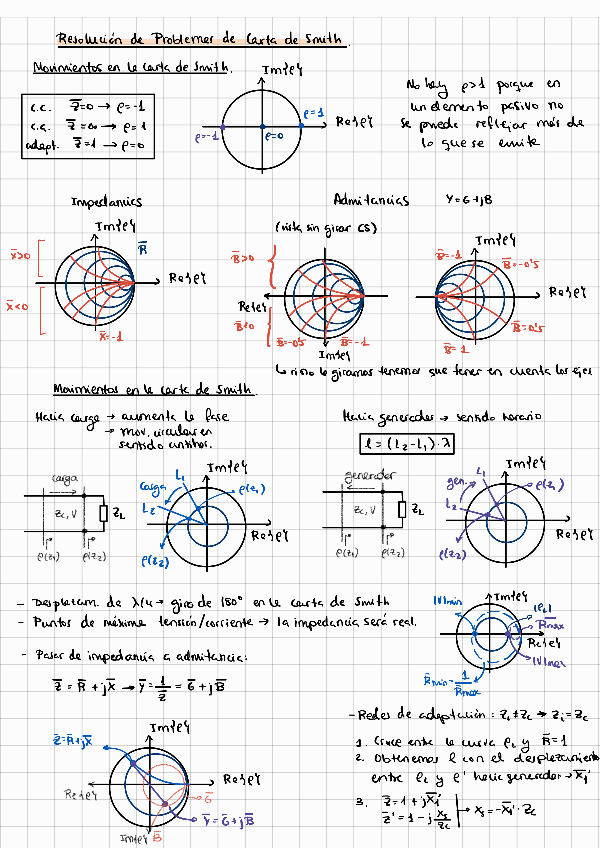 Resolución de Problemas de Carta de Smith.
Movimientos en la Carta de Smith.
c.c. Z̅=0 → ρ=-1
c.a. Z̅=∞ → ρ=1
adapt. Z̅=1 → ρ=0
Im{ρ}
Re{ρ}
ρ=1
ρ=-1
ρ=0
No hay ρ>1 porque en
un elemento pasivo no
se puede reflejar más de
lo que se emite
Impedancias
Im{ρ}
R̅
X̅>0
X̅<0
Re{ρ}
X̅=-1
Admitancias Y=G+jB
(vista sin girar CS)
B̅>0
B̅<0
Re{ρ}
B̅=-0'5
B̅=-1
Im{ρ}
Im{ρ}
B̅=-1
B̅=-0'5
Re{ρ}
B̅=0'5
B̅=1
↳ si no lo giramos tenemos que tener en cuenta los ejes
Movimientos en la carta de Smith.
Hacia carga → aumenta la fase
→ mov. circular en
sentido antihor.
Hacia generador → sentido horario
l=(L₂-L₁)·λ
carga
Zc, V
ZL
ρ(z₁)
ρ(z₂)
Im{ρ}
carga
L₁
L₂
ρ(z₁)
Re{ρ}
ρ(z₂)
generador
Zc, V
ZL
ρ(z₁)
ρ(z₂)
Im{ρ}
gen.
L₁
L₂
ρ(z₁)
Re{ρ}
ρ(z₂)
- Desplazam. de λ/4 → giro de 180° en la carta de Smith
- Puntos de máxima tensión/corriente → la impedancia será real.
- Pasar de impedancia a admitancia:
Z̅ = R̅ + jX̅ → Y̅ = 1/Z̅ = G̅ + jB̅
|V|min
Im{ρ}
|ρL|
R̅max
Re{ρ}
|V|max
R̅min = 1/R̅max
Im{ρ}
Z̅=R̅+jX̅
Re{ρ}
Re{ρ}
G̅
Y̅=G̅+jB̅
Im{ρ}
B̅
- Redes de adaptación: Zi≠Zc → Zi=Zc
1. Cruce entre la curva ρL y R̅=1
2. Obtenemos l con el desplazamiento
entre ρL y ρ' hacia generador → X̅i'
3. Z̅=1+jX̅i'
Z̅'=1-j Xs/Zc
→ Xs=-X̅i'·Zc